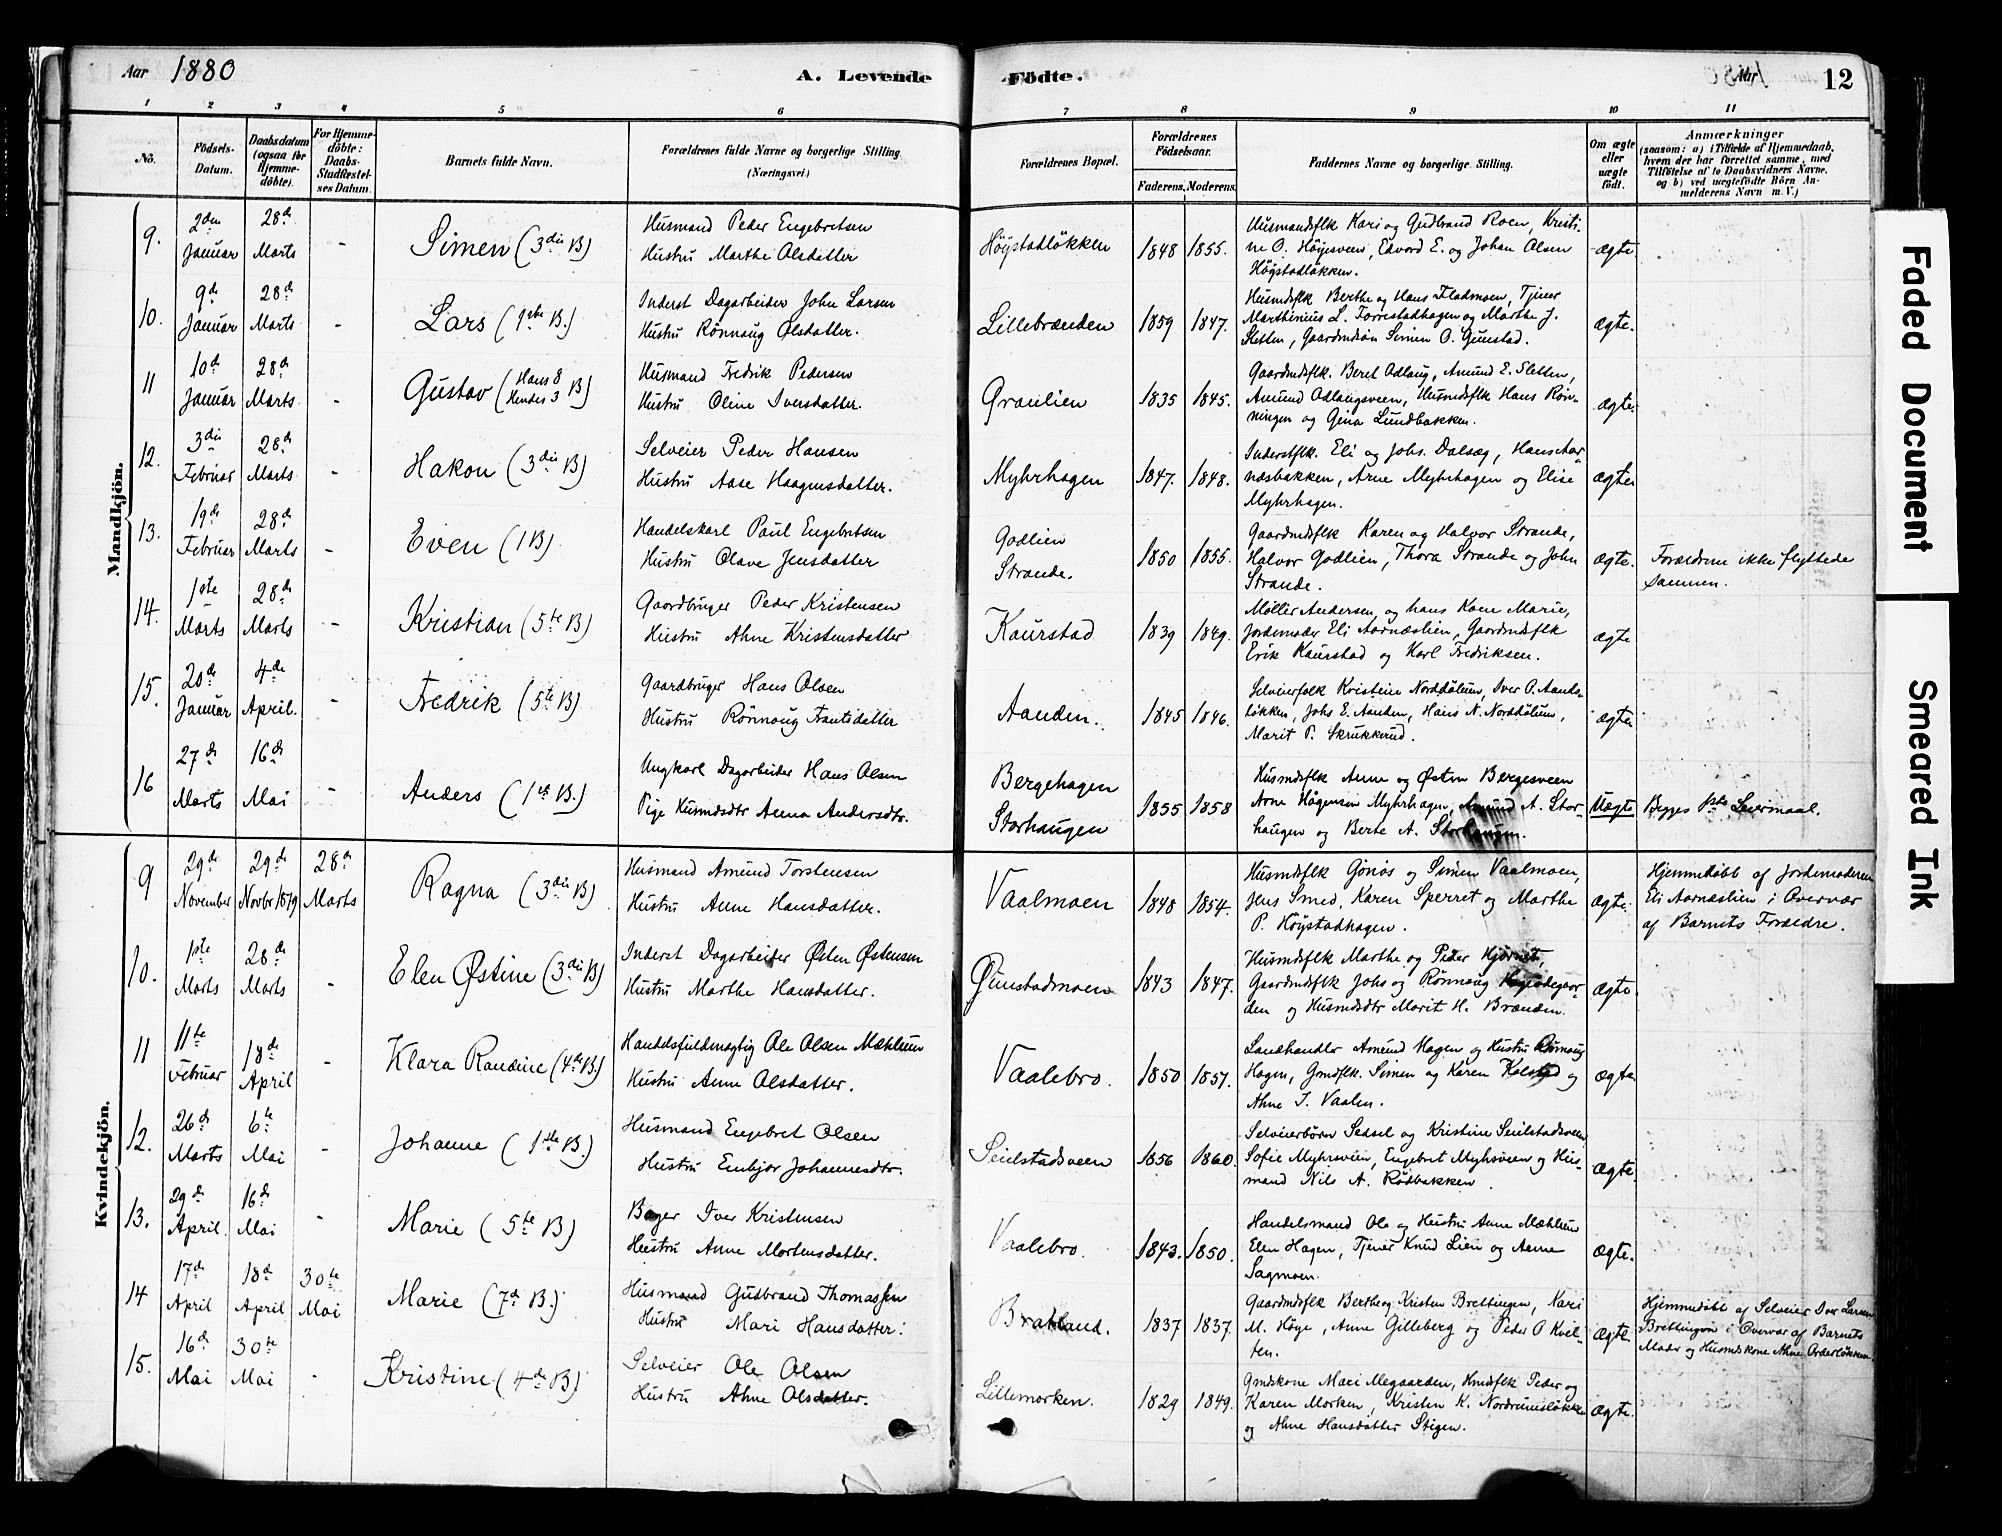 Aar 1880
A. Levende
Födte.
Aar
12
1 2 3 4 5 6 7 8 9 10 11
No.
Födsels-Datum.
Daabsdatum (ogsaa for Hjemme-döbte).
For Hjemme-döbte: Daabs-Stadfestel-ses Datum.
Barnets fulde Navn.
Forældrenes fulde Navne og borgerlige Stilling (Næringsvei.)
Forældrenes Bopæl.
Forældrenes Födselsaar.
Faderens. Moderens.
Faddernes Navne og borgerlige Stilling.
Om ægte eller uægte födt.
Anmærkninger
(saasom: a) i Tilfælde af Hjemmedaab,
hvem der har forrettet samme, med
Tilföielse af to Daabsvidners Navne,
og b) ved uægtefödte Börn An-
melderens Navn m. V.)
Mandkjön.
9. 2den Januar 28de Marts - Simen (3die B)
Husmand Peder Engebretsen
Hustru Marthe Olsdatter
Höystadlökken 1848 1855.
Husmandsflk Kari og Gudbrand Roen, Kristi-
ne O. Höyesveen, Edvord E. og Johan Olsen
Höystadlökken.
ægte
10. 9de Januar 28de Marts - Lars (1ste B.)
Inderst Dagarbeider John Larsen
Hustru Rönnaug Olsdatter.
Lillebrænden 1859 1847.
Husmdsflk Berthe og Hans Fladmoen, Tjener
Marthinius L. Forrestadhagen og Marthe J.
Sletten, Gaardmdsön Simen O. Gunstad.
ægte.
11 10de Januar 28de Marts - Gustav (Hans 8 Hendes 3 B)
Husmand Fredrik Pedersen
Hustru Oline Iversdatter.
Graulien 1835 1845.
Gaardmdsflk. Beret Odlaug, Amund E. Sletten,
Amund Odlaugsveen, Husmdsflk Hans Rön-
ningen og Gina Lundbakken.
ægte.
12. 3die Februar 28de Marts - Hakon (3die B)
Selveier Peder Hansen
Hustru Aase Haagensdatter.
Myhrhagen 1847. 1848.
Inderstflk. Eli og Johs. Dalseg, Hans Aar-
næsbakken, Arne Myhrhagen og Elise
Myhrhagen.
ægte
13. 19de Februar 28de Marts - Even (1 B)
Handelskarl Paul Engebretsen
Hustru Olave Jensdatter
Godlien
Strande.
1850 1855.
Gaardmdsflk Karen og Halvor Strande,
Halvor Godlien, Thora Strande og John
Strande.
ægte.
Forældrene ikke flyttede
sammen.
14. 1ste Marts 28de Marts - Kristian (5te B)
Gaardbruger Peder Kristensen
Hustru Ahne Kristensdatter
Kaurstad 1839 1849.
Möller Andersen, og hans Kone Marie,
Jordemoder Eli Aarnæslien, Gaardmdsflk
Erik Kaurstad og Karl Fredriksen.
ægte
15. 20de Januar 4de April. - Fredrik (5te B)
Gaardbruger Hans Olsen
Hustru Rönnaug Frantsdatter
Aanden. 1845 1846.
Selveierfolk Kristine Norddölum, Iver O. Aands-
lökken, Johs E. Aanden, Hans N. Norddölum,
Marit P. Skrukkerud.
ægte
16 27de Marts 16de Mai - Anders (1ste B.)
Ungkarl Dagarbeider Hans Olsen
Pige Husmdsdtr Anna Andersdtr.
Bergehagen
Storhaugen
1855 1858
Husmdsflk Anne og Østen Bergesveen
Arne Högensen Myhrhagen, Amund A. Stor-
haugen og Berte A. Storhaugen.
Uægte
Begges 1ste Leiermaal.
Kvindekjön.
9 29de November 29de Novbr 1879 28de Marts Ragna (3die B)
Husmand Amund Torstensen
Hustru Anne Hansdatter.
Vaalmoen 1848 1854.
Husmdsflk Gönös og Simen Vaalmoen,
Jens Smed, Karen Sperret og Marthe
P. Höystadhagen.
ægte.
Hjemmedöbt af Jordemoderen
Eli Aarnæslien i Overvær
af Barnets Forældre.
10. 1ste Marts 28de Marts - Elen Østine (3die B)
Inderst Dagarbeider Østen Østensen
Hustru Marthe Hansdatter.
Gunstadmoen 1843 1847.
Husmdsflk Marthe og Peder Kjörnet,
Gaardmdsflk Johs og Rönnaug
den og Husmdsdtr Marit H. Brænden.
ægte
11 11te Februar 18de April - Klara Randine (4de B.)
Handelsfuldmægtig Ole Olsen Mæhlum
Hustru Anne Olsdatter.
Vaalebro. 1850 1857.
Landhandler Amund Hagen og Hustru Rönnaug
Hagen, Gmdflk. Simen og Karen Kolstad og
Ahne I. Vaalen.
ægte
12. 26de Marts 6te Mai - Johanne (1ste B.)
Husmand Engebret Olsen
Hustru Embjör Johannesdtr.
Seielstadsveen 1856 1860.
Selveierbörn Sidsel og Kristine Seielstadsveen
Sofie Myhrsveen, Engebret Myhsveen og Hus-
mand Nils A. Rödbakken.
ægte
13. 29de April. 16de Mai - Marie (5te B)
Bager Iver Kristensen
Hustru Anne Mortensdatter.
Vaalebro. 1843. 1850.
Handelsmand Ole og Hustru Anne Mæhlum
Elen Hagen, Tjener Knud Lien og Anne
Sagmoen.
ægte.
14 17de April 18de April 30te Mai Marie (7de B.)
Husmand Gudbrand Thomassen
Hustru Mari Hansdatter.
Bratland. 1837 1837.
Gaardmdsflk Berthe og Kristen Brettingen, Kari
M. Höge, Anne Gilleberg og Peder O Kvil-
ten.
ægte
Hjemmedöbt af Selveier Iver Larsen
Brettingen i Overvær af Barnets
Moder og Husmdskone Ahne Orderlökken.
15. 16de Mai 30te Mai - Kristine (4de B)
Selveier Ole Olsen
Hustru Ahne Olsdatter.
Lillemorken. 1829 1849.
Gmdskone Mari Megaarden, Husmdflk Peder og
Karen Morken, Kristen K. Nordrumslökken
og Ahne Hansdatter Stigen.
ægte.
Faded Document
Smeared Ink